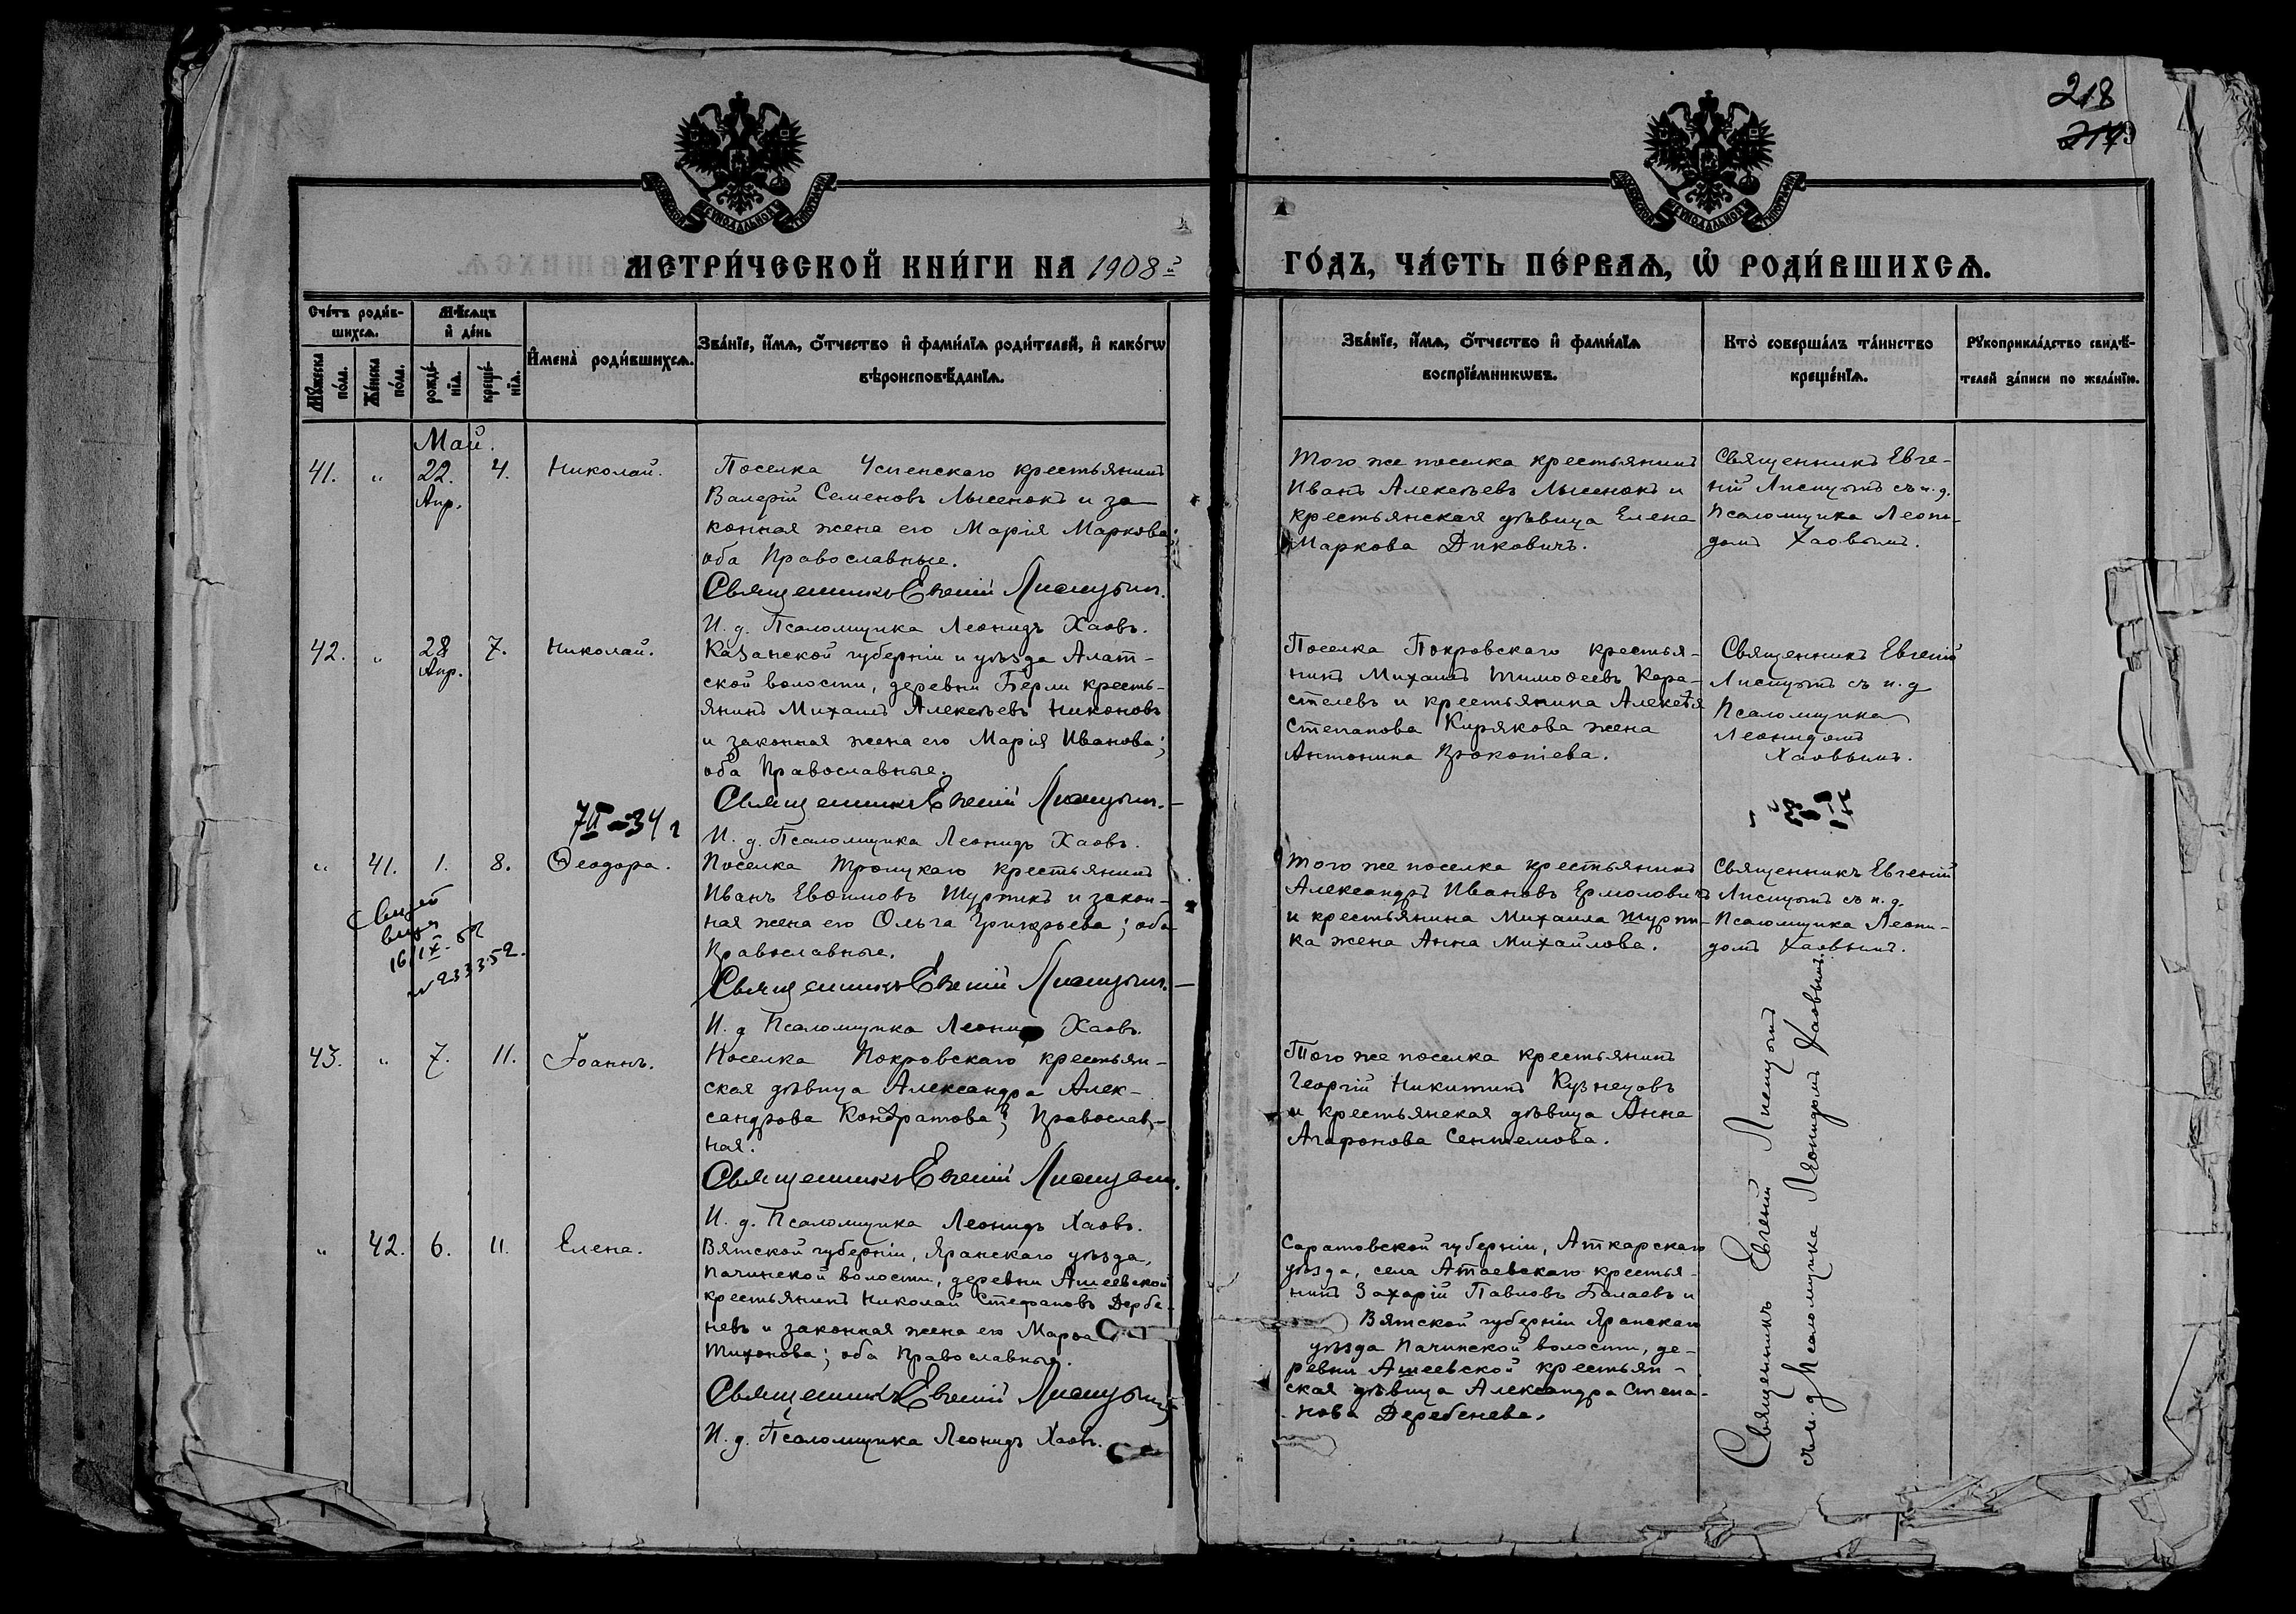 218
МЕТРИ́ЧЕСКОЙ КНИ́ГИ НА 1908й
ГО́ДЪ, ЧА́СТЬ ПЕ́РВАѦ, Ѡ РОДИ́ВШИХСѦ.
Сче́тъ роди́в-
шихсѧ.
Мꙋ́жеска по́ла.
Же́нска по́ла.
Мѣ́сѧцъ
и де́нь
рожде́-
нїѧ.
креще́-
нїѧ.
Имена̀ роди́вшихсѧ.
Зва́нїе, и́мѧ, ѻ́тчество и фами́лїѧ роди́телей, и како́гѡ
вѣроисповѣ́данїѧ.
Зва́нїе, и́мѧ, ѻ́тчество и фами́лїѧ
воспрїе́мникѡвъ.
Кто̀ соверша́лъ та́инство
креще́нїѧ.
Рꙋкоприкла́дство свидѣ́-
телей за́писи по жела́нїю.
Май.
41. " 22. Апр. 4. Николай.
Поселка Успенскаго крестьянинъ
Валерій Семеновъ Лысенокъ и за
конная жена его Марія Маркова
оба Православные.
Священникъ Евгеній Лисицынъ.
И. д. Псаломщика Леонидъ Хаовъ.
Того же поселка крестьянинъ
Иванъ Алексѣевъ Лысенокъ и
крестьянская дѣвица Елена
Маркова Диковичъ.
Священникъ Евге-
ній Лисицынъ съ и. д.
Псаломщика Леони-
домъ Хаовымъ.
42. " 28 Апр. 7. Николай.
Казанской губерніи и уѣзда Алат-
ской волости, деревни Берли кресть-
янинъ Михаилъ Алексѣевъ Никоновъ
и законная жена его Марія Иванова;
оба Православные.
Священникъ Евгеній Лисицынъ.
И. д. Псаломщика Леонидъ Хаовъ.
Поселка Покровскаго крестья-
нинъ Михаилъ Тимоѳеевъ Кара-
стелевъ и крестьянина Алексѣя
Степанова Кирякова жена
Антонина Прокопіева.
Священникъ Евгеній
Лисицынъ съ и. д
Псаломщика
Леонидомъ
Хаовымъ.
" 41. 1. 8. Ѳеодора.
Поселка Троицкаго крестьянинъ
Иванъ Евѳимовъ Шуртикъ и закон-
ная жена его Ольга Григорьева; оба
Православные.
Священникъ Евгеній Лисицынъ.
И. д Псаломщика Леонидъ Хаовъ.
Того же поселка крестьянинъ
Александръ Ивановъ Ермоловичъ
и крестьянина Михаила Шурти-
ка жена Анна Михайлова.
Священникъ Евгеній
Лисицынъ съ и. д.
Псаломщика Леони-
домъ Хаовымъ.
43. " 7. 11. Іоаннъ.
Поселка Покровскаго крестьян-
ская дѣвица Александра Алек-
сандрова Кондратова; Православ-
ная.
Священникъ Евгеній Лисицынъ.
И. д. Псаломщика Леонидъ Хаовъ.
Того же поселка крестьянинъ
Георгій Никитинъ Кузнецовъ
и крестьянская дѣвица Анна
Агафонова Сентемова.
" 42. 6. 11. Елена.
Вятской губерніи, Яранскаго уѣзда,
Пачинской волости, деревни Ашеевской
крестьянинъ Николай Стефановъ Дербе-
невъ и законная жена его Марѳа
Тихонова; оба Православные.
Священникъ Евгеній Лисицынъ
И. д. Псаломщика Леонидъ Хаовъ.
Саратовской губерніи, Аткарскаго
уѣзда, села Атаевскаго крестья-
нинъ Захарій Павловъ Балаевъ и
Вятской губерніи Яранскаго
уѣзда Пачинской волости, де-
ревни Ашеевской крестьян-
ская дѣвица Александра Степа-
нова Деребенева.
Священникъ Евгеній Лисицынъ
съ и. д Псаломщика Леонидомъ Хаовымъ.